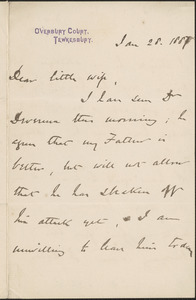 OVERBURY COURT,
TEWKESBURY.
Jan 28. 188
Dear little wife,
I have seen Dr
this morning; he
agrees that my Father is
better, but will not allow
that he has shaken off
his attack yet, & I am
unwilling to leave him today